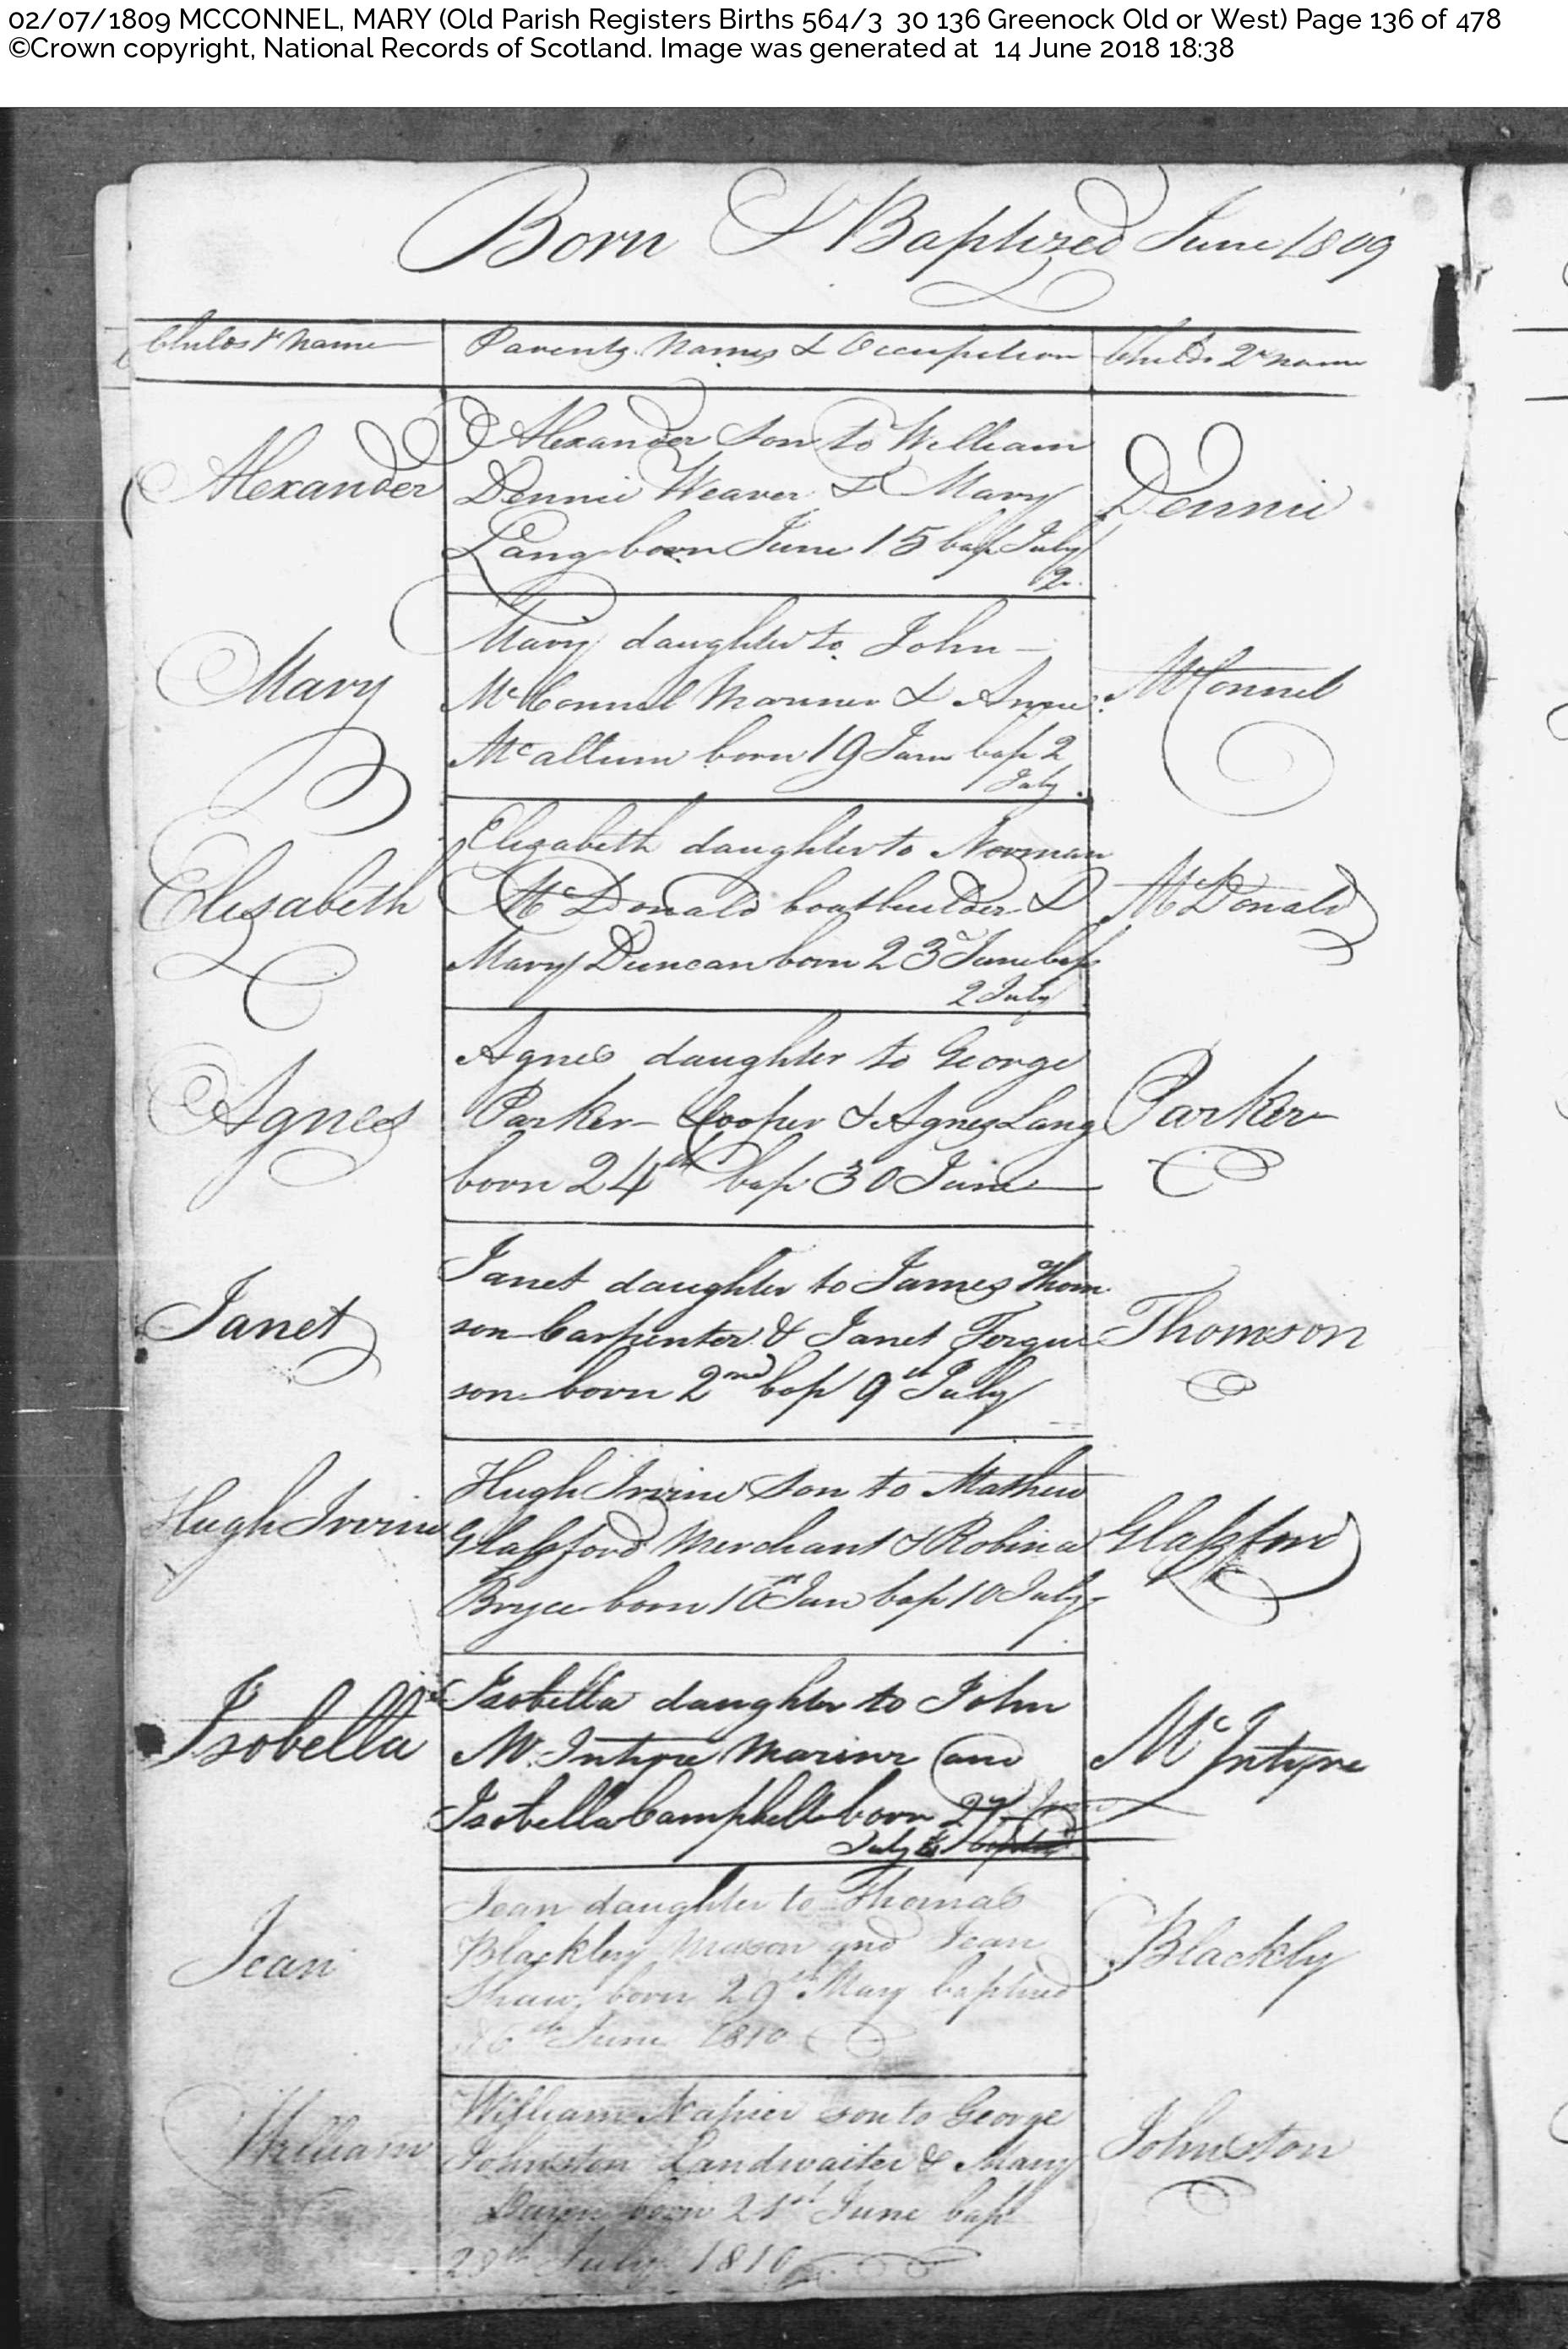 02/07/1809 MCCONNEL, MARY (Old Parish Registers Births 564/3 30 136 Greenock Old or West) Page 136 of 478
©Crown copyright, National Records of Scotland. Image was generated at 14 June 2018 18:38
Born & Baptized June 1809
Childs 1st Name Parents Names & Occupation Childs 2d name
Alexander
Alexander son to William
Dennie Weaver & Mary
Lang born June 15 bap July
2
Dennie
Mary
Mary daughter to John
McConnel Mariner & Anne
Mcallum born 19 June bap 2
July
McConnel
Elizabeth
Elizabeth daughter to Norman
McDonald boatbuilder &
Mary Duncan born 23d June bap
2 July
McDonald
Agnes
Agnes daughter to George
Parker Cooper & Agnes Lang
born 24th bap 30 June
Parker
Janet
Janet daughter to James Thom
son Carpenter & Janet Fergu
son born 2nd bap 9th July
Thomson
Hugh Irvine
Hugh Irvine son to Mathew
Glassford Merchant & Robina
Bryce born 10th Jun bap 10 July
Glassford
Isobella
Isobella daughter to John
Mc Intyre Mariner and
Isobella Campbell born 27
July
Mc Intyre
Jean
Jean daughter to Thomas
Blackley Mason and Jean
Shaw, born 29th May baptized
June 1810
Blackly
William
William Napier son to George
Johnston Landwaiter & Mary
born 21st June bap
28th July 1810
Johnston